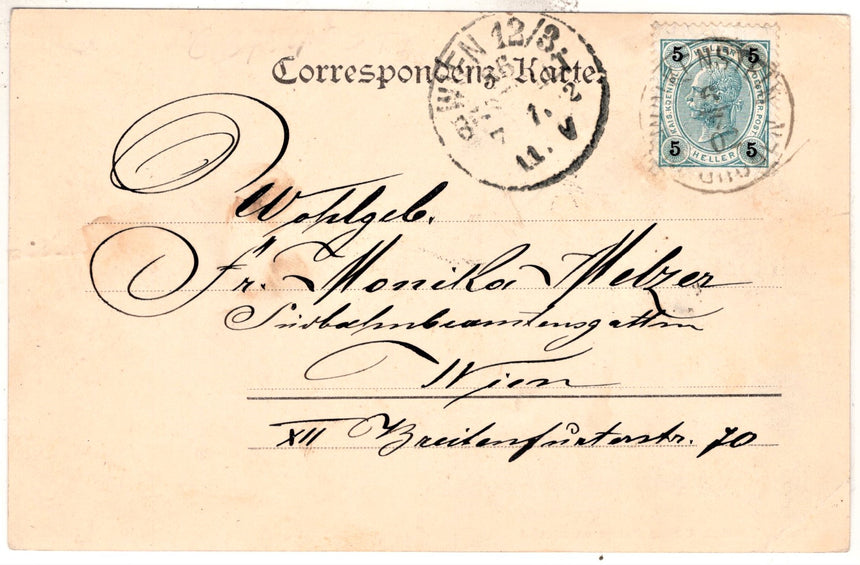 Correspondenz-Karte.
WIEN 12/3
5 HELLER 5
KAIS. KOENIGL. OESTERR. POST
5 HELLER 5
Wohlgeb.
Fr. Monika Melzer
Südbahnbeamtensgattin
Wien
XII Breitenfurterstr. 70